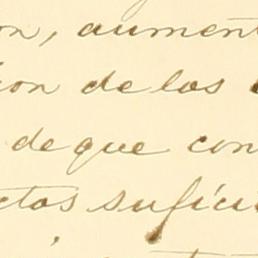 on, aument
ion de los
de que con
ctos sufici